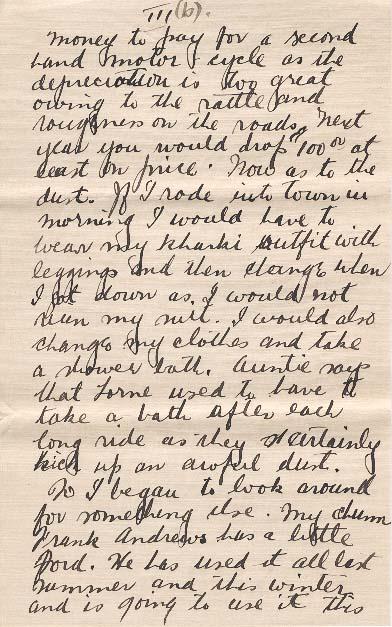 III (b).
Money to pay for a second
hand motor cycle as the
depreciation is too great
owing to the rattle and
roughness on the roads. Next
year you would drop $100.00 at
least on price. Now as to the
dust. If I rode into town in
morning I would have to
wear my kharki outfit with
leggings and then change when
I got down as I would not
ruin my suit. I would also
change my clothes and take
a shower bath. Auntie says
that Lorne used to have to
take a bath after each
long ride as they certainly
kick up an awful dust.
So I began to look around
for something else. My chum
Frank Andrews has a little
Ford. He has used it all last
summer and this winter
and is going to use it this